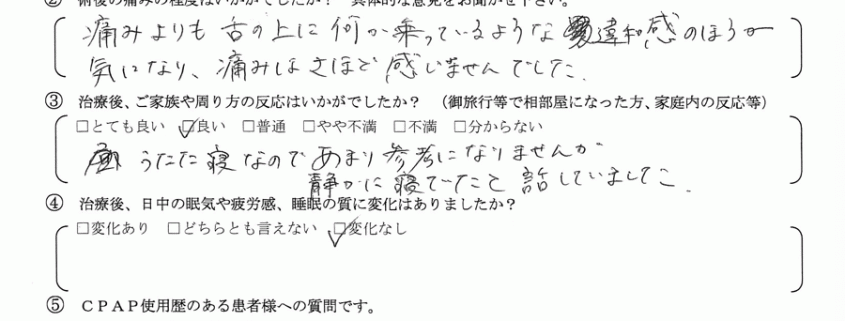 ② 術後の痛みの程度はいかがでしたか? 具体的な意見をお聞かせ下さい。
痛みよりも舌の上に何か乗っているような違和感のほうが
気になり、痛みはさほど感じませんでした。
③ 治療後、ご家族や周り方の反応はいかがでしたか? (御旅行等で相部屋になった方、家庭内の反応等)
□とても良い ☑良い □普通 □やや不満 □不満 □分からない
うたた寝なのであまり参考になりませんが
静かに寝ていたと話していました。
④ 治療後、日中の眠気や疲労感、睡眠の質に変化はありましたか?
□変化あり □どちらとも言えない ☑変化なし
⑤ CPAP使用歴のある患者様への質問です。